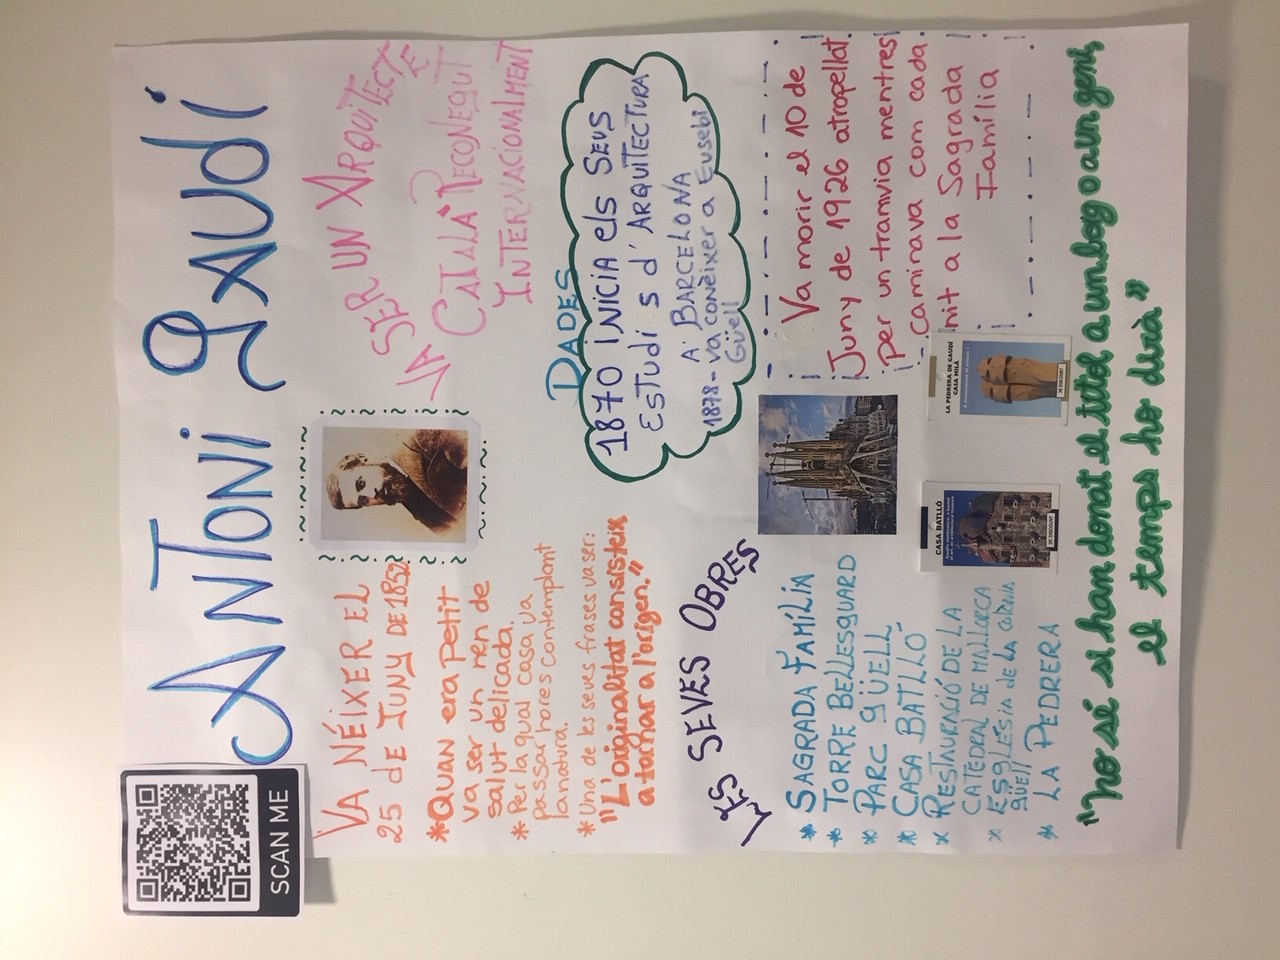 SCAN ME
ANTONI GAUDÍ
VA NÉIXER EL
25 dE JUNY DE 1852
VA SER UN ARQUITECTE
CATALÀ RECONEGUT
INTERNACIONALMENT
*QUAN era petit
va ser un nen de
salut delicada.
* Per la qual cosa va
passar hores contemplant
la natura.
* Una de les seves frases va ser:
"L'originalitat consisteix
a tornar a l'origen."
DADES
1870 INICIA els SEUS
ESTUDIS d'ARQUITECTURA
A BARCELONA
1878 - va conèixer a Eusebi
Güell
LES SEVES OBRES
* SAGRADA FAMÍLIA
* TORRE BELLESGUARD
* PARC GÜELL
* CASA BATLLÓ
* RESTAURACIÓ DE LA
CATEDRAL DE MALLORCA
* ESGLÉSIA de la colònia
güell
* LA PEDRERA
Va morir el 10 de
Juny de 1926 atropellat
per un tramvia mentres
caminava com cada
nit a la Sagrada
Família
CASA BATLLÓ
LA PEDRERA DE GAUDÍ
CASA MILÀ
"No sé si han donat el títol a un boig o a un geni,
el temps ho dirà"